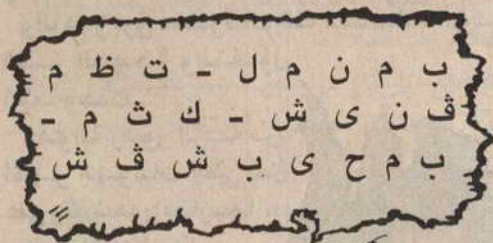 ب م ن م ل - ت ظ م
ڤ ن ى ش - ك ث م -
ب م ح ى ب ش ڤ ش